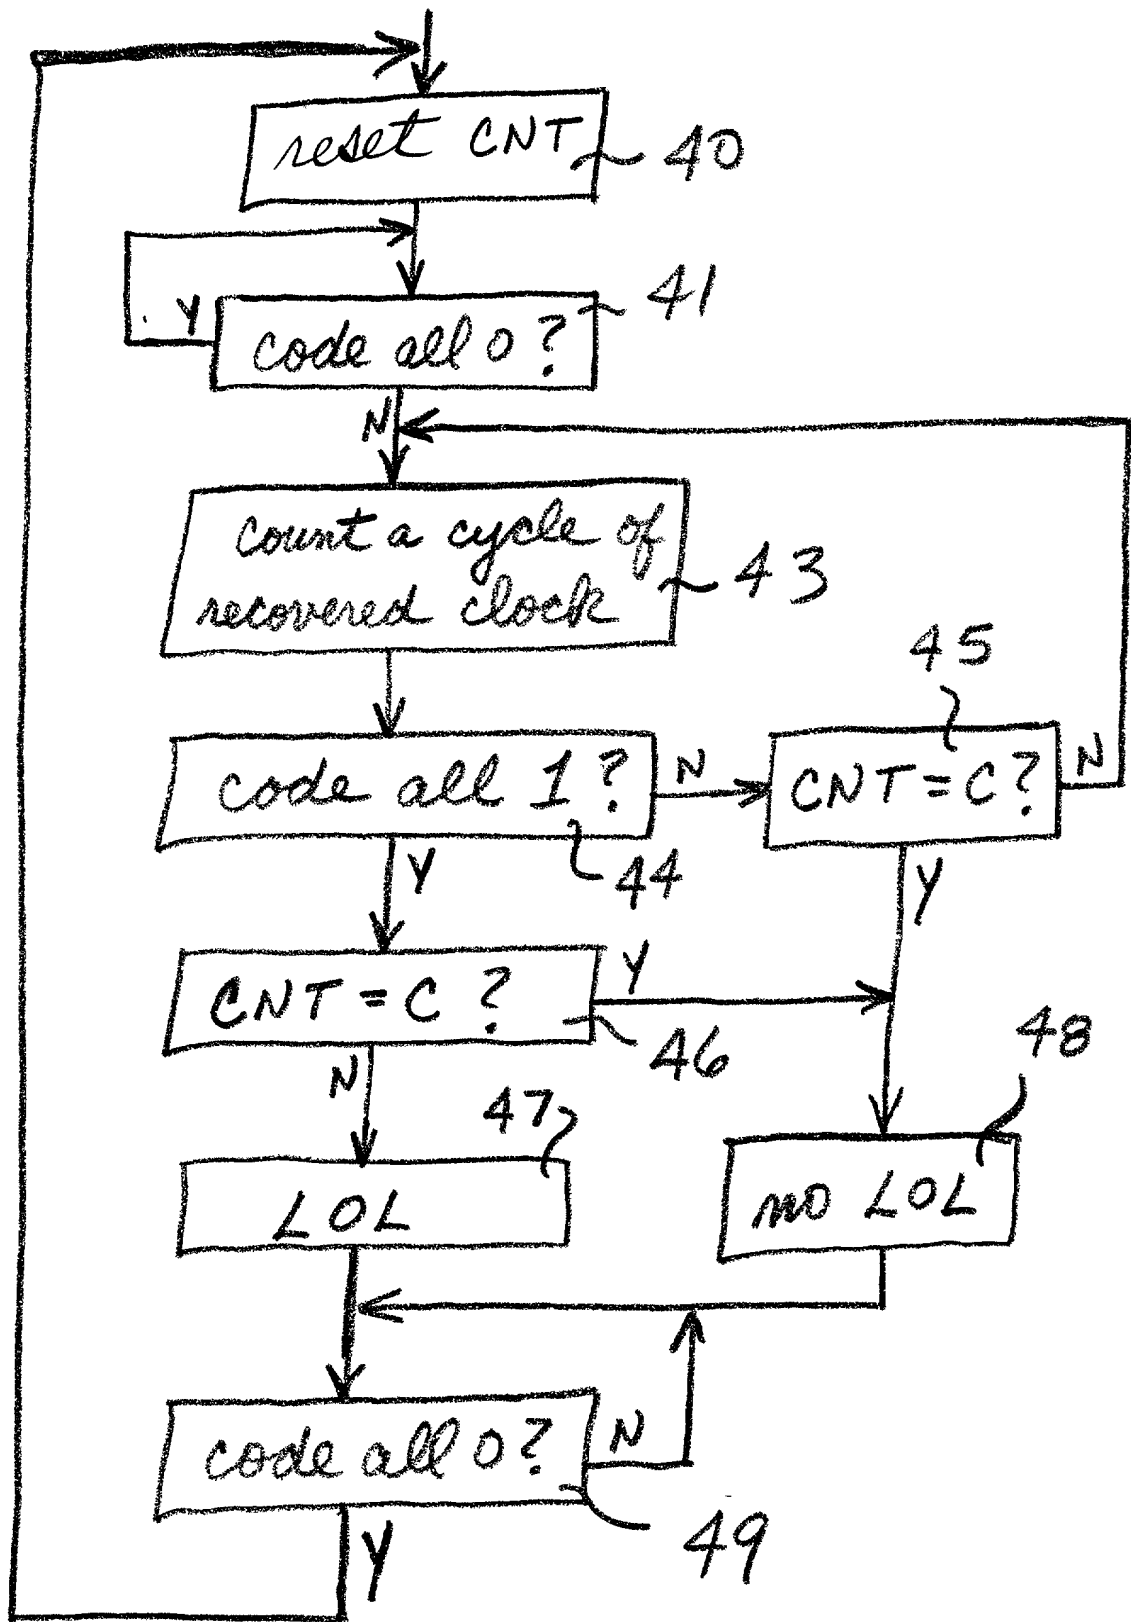 reset CNT
40
41
Y
code all 0 ?
N
count a cycle of
recovered clock
43
45
code all 1 ?
N
CNT = C ?
N
44
Y
Y
CNT = C ?
Y
46
48
N
47
LOL
no LOL
code all 0 ?
N
49
Y